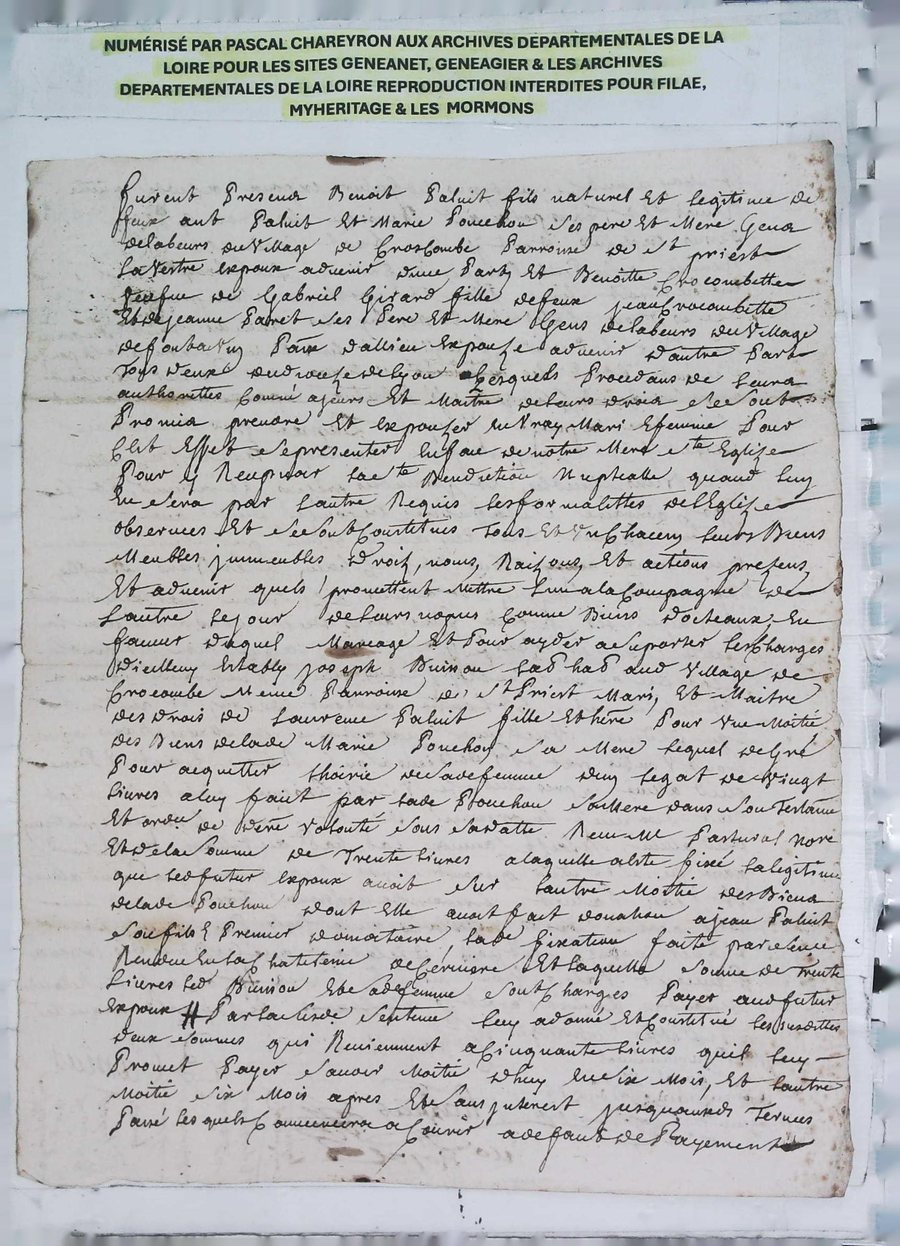 NUMÉRISÉ PAR PASCAL CHAREYRON AUX ARCHIVES DEPARTEMENTALES DE LA
LOIRE POUR LES SITES GENEANET, GENEAGIER & LES ARCHIVES
DEPARTEMENTALES DE LA LOIRE REPRODUCTION INTERDITES POUR FILAE,
MYHERITAGE & LES MORMONS
Furent Presens Benoit Paluit fils naturel Et legitime de
feux ant Paluit Et Marie Pouchou ses pere Et Mere Gens
delabeurs du Village de Croscombe Parroisse de st priest
La Vestre Expoux advenir dune Part Et Benoitte Crocombette
veufue de Gabriel Girard fille defeux jean Crocombette
Et de jeanne Paret ses Pere Et Mere Gens delabeurs du Village
de Paix dallieu Expouze advenir dautre Part
Tous deux du de Lyon Lesquels Procedans de leurs
authorittes Comm ajeurs Et Maitre de leurs drois se sont
Promis prendre Et expouzer en Vray Mari Efemme Pour
C Effet se presenter En face de notre Mere ste Eglize
Pour y Recepvoir la ste Benediction Nuptialle quand luy
En sera par Lautre Requis les formalittes de L'Eglize
observées Et se sont Constitués Tous Et Un Chacun leurs Biens
Meubles jmmeubles Droits, noms, Raisons, Et actions presens
Et advenir quels promettent Mettre Lun a la Compagnie de
Lautre le jour de leurs nopces Comme Biens dotteaux, En
faveur duquel Mareage Et Pour ayder a suporter les Charges
dicelluy Establi joseph Buisson lab hab aud Village de
Crocombe Meme Parroisse de St Priest Mari, Et Maitre
des drois de Laurence Paluit fille Et here Pour Une Moitié
des Biens de lade Marie Pouchou sa Mere lequel de Gré
Pour acquitter lhoirie de sade femme dun legat de Vingt
livres a luy faict par lade Pouchou sa Mere dans son Testame
Et ordce de dere Volonté sous sa datte Receu Me Pastural nore
Et de la somme de Trente livres a laquelle a ete fixé la legitime
que led futur Expoux avoit sur Lautre Moitié des Biens
de lade Pouchou dont Elle avoit fait donation a jean Paluit
son fils Premier donnataire, lade fixation faite par sence
Rendue En la Chatelenie de Cerviere Et laquelle somme de Trente
Livres led Buisson Et sade femme sont Charges Payer aud futur
Expoux # Par lade Sentence luy a donné Et Constitué les susdittes
deux sommes qui Reviennent a Cinquante livres quil luy
Promet Payer savoir Moitié dhuy En Six Mois, Et Lautre
Moitié Six Mois apres Et sans jnterest jusquausds Termes
Passé lesquels Commencera a Courir a defaut de Payement